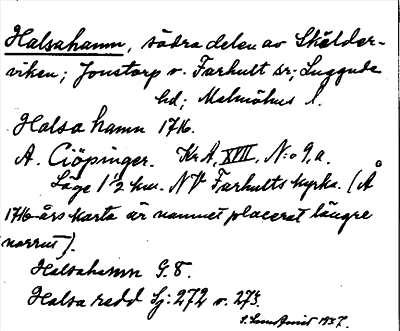 Halsahamn, södra delen av Skälder-
viken; Jonstorp o. Farhult sr; Luggude
hd; Malmöhus l.
Halsa hamn 1716.
A. Ciöpinger. Kr A, XVII, N:o 9, a.
Läge 1 1/2 km. NV Farhults kyrka. (Å
1716 års karta är namnet placerat längre
norrut).
Halsahamn G. B.
Halsa redd Sj: 272 o. 273.
1937.